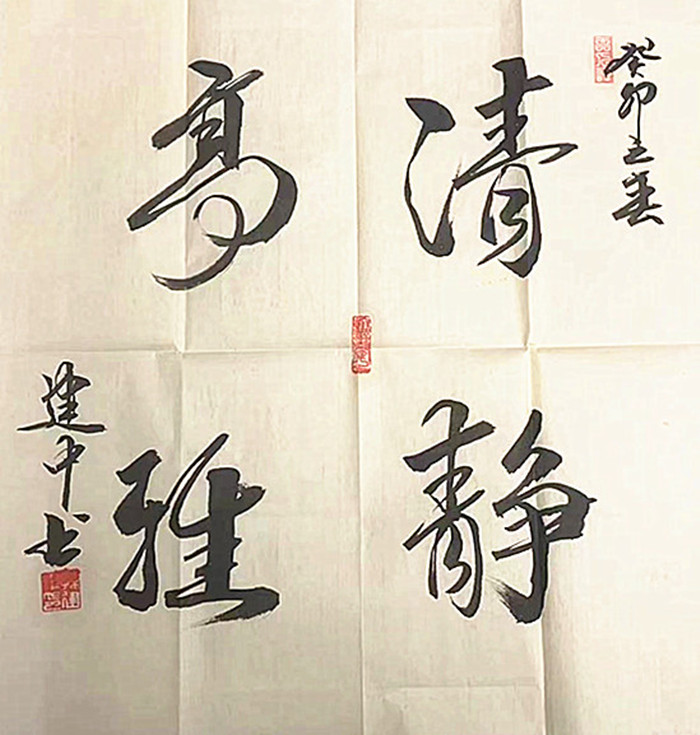 癸卯之春
清静
高雅
建中书